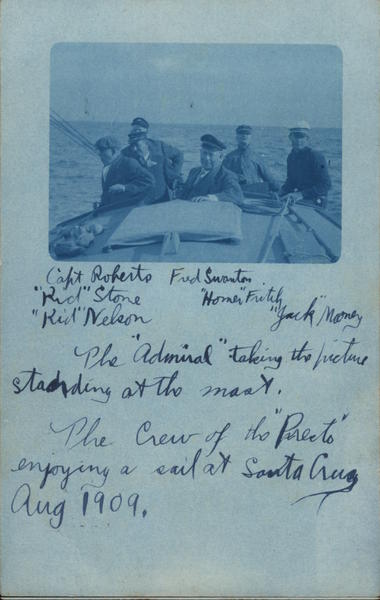 Capt Roberts Fred Swanton
"Kid" Stone "Homer" Fritch
"Kid" Nelson "Jack" Mooney
The "Admiral" taking the picture
standding at the mast.
The Crew of the "Presto"
enjoying a sail at Santa Cruz
Aug 1909.